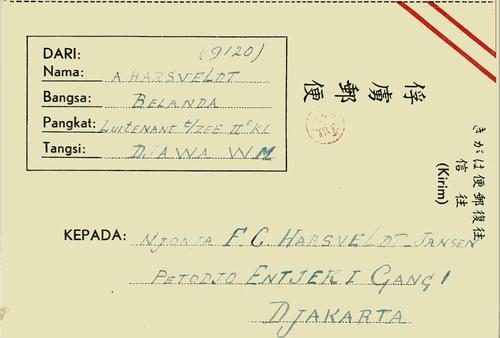 DARI: (9120)
Nama: A HARSVELDT
Bangsa: BELANDA
Pangkat: LUITENANT t/ZEE IIe KL
Tangsi: DJAWA W.M
俘虜郵便
往復郵便はがき
往信
(Kirim)
KEPADA: NJONJA F C HARSVELDT-JANSEN
PETODJO ENTJEK I GANG 1
DJAKARTA